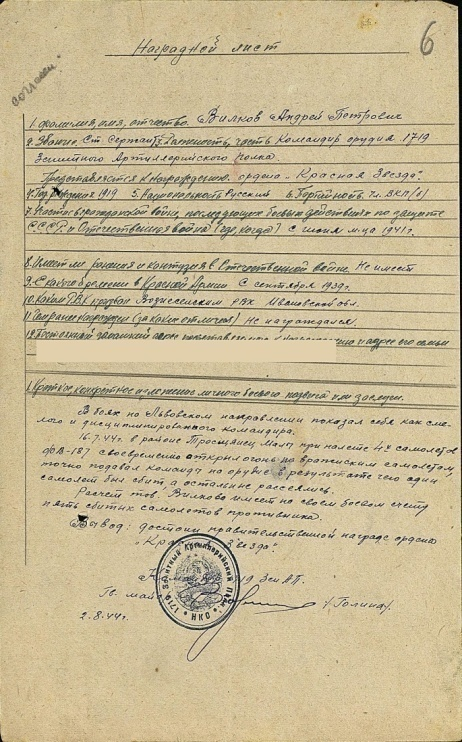 6
Наградной лист
согласен
1. Фамилия, имя, отчество Вилков Андрей Петрович
2. Звание Ст. Сержант 3. Должность, часть Командир орудия 1719
Зенитного Артиллерийского полка.
Представляется к награждению ордена - Красная Звезда.
4. Год рождения 1919 5. Национальность Русский 6. Партийность Чл. ВКП(б)
7. Участие в гражданской войне, последующих боевых действиях по защите
СССР и Отечественной войне (где, когда) С июня м-ца 1941 г.
8. Имеет ли ранения и контузии в Отечественной войне Не имеет
9. С какого времени в Красной Армии С сентября 1939 г.
10. Каким РВК призван Вознесенским РВК Ивановской обл.
11. Чем ранее награжден (за какие отличия) Не награждался.
12. Постоянный домашний адрес и адрес его семьи
1. Краткое конкретное изложение личного боевого подвига или заслуги.
В боях на Львовском направлении показал себя как сме-
лого и дисциплинированного командира.
16.7.44 г. в районе Тростянец Малы при налете 4х самолетов
ФВ-187 своевременно открыл огонь по вражеским самолетам,
точно подавал команды на орудие в результате чего один
самолет был сбит, а остальные рассеялись.
Расчет тов. Вилкова имеет на своем боевом счету
пять сбитых самолетов противника.
Вывод: достоин правительственной награде ордена
"Красная Звезда".
ЗенАП.
Гв. майор
2.8.44 г.
1719 Зенитный Артиллерийский Полк
НКО